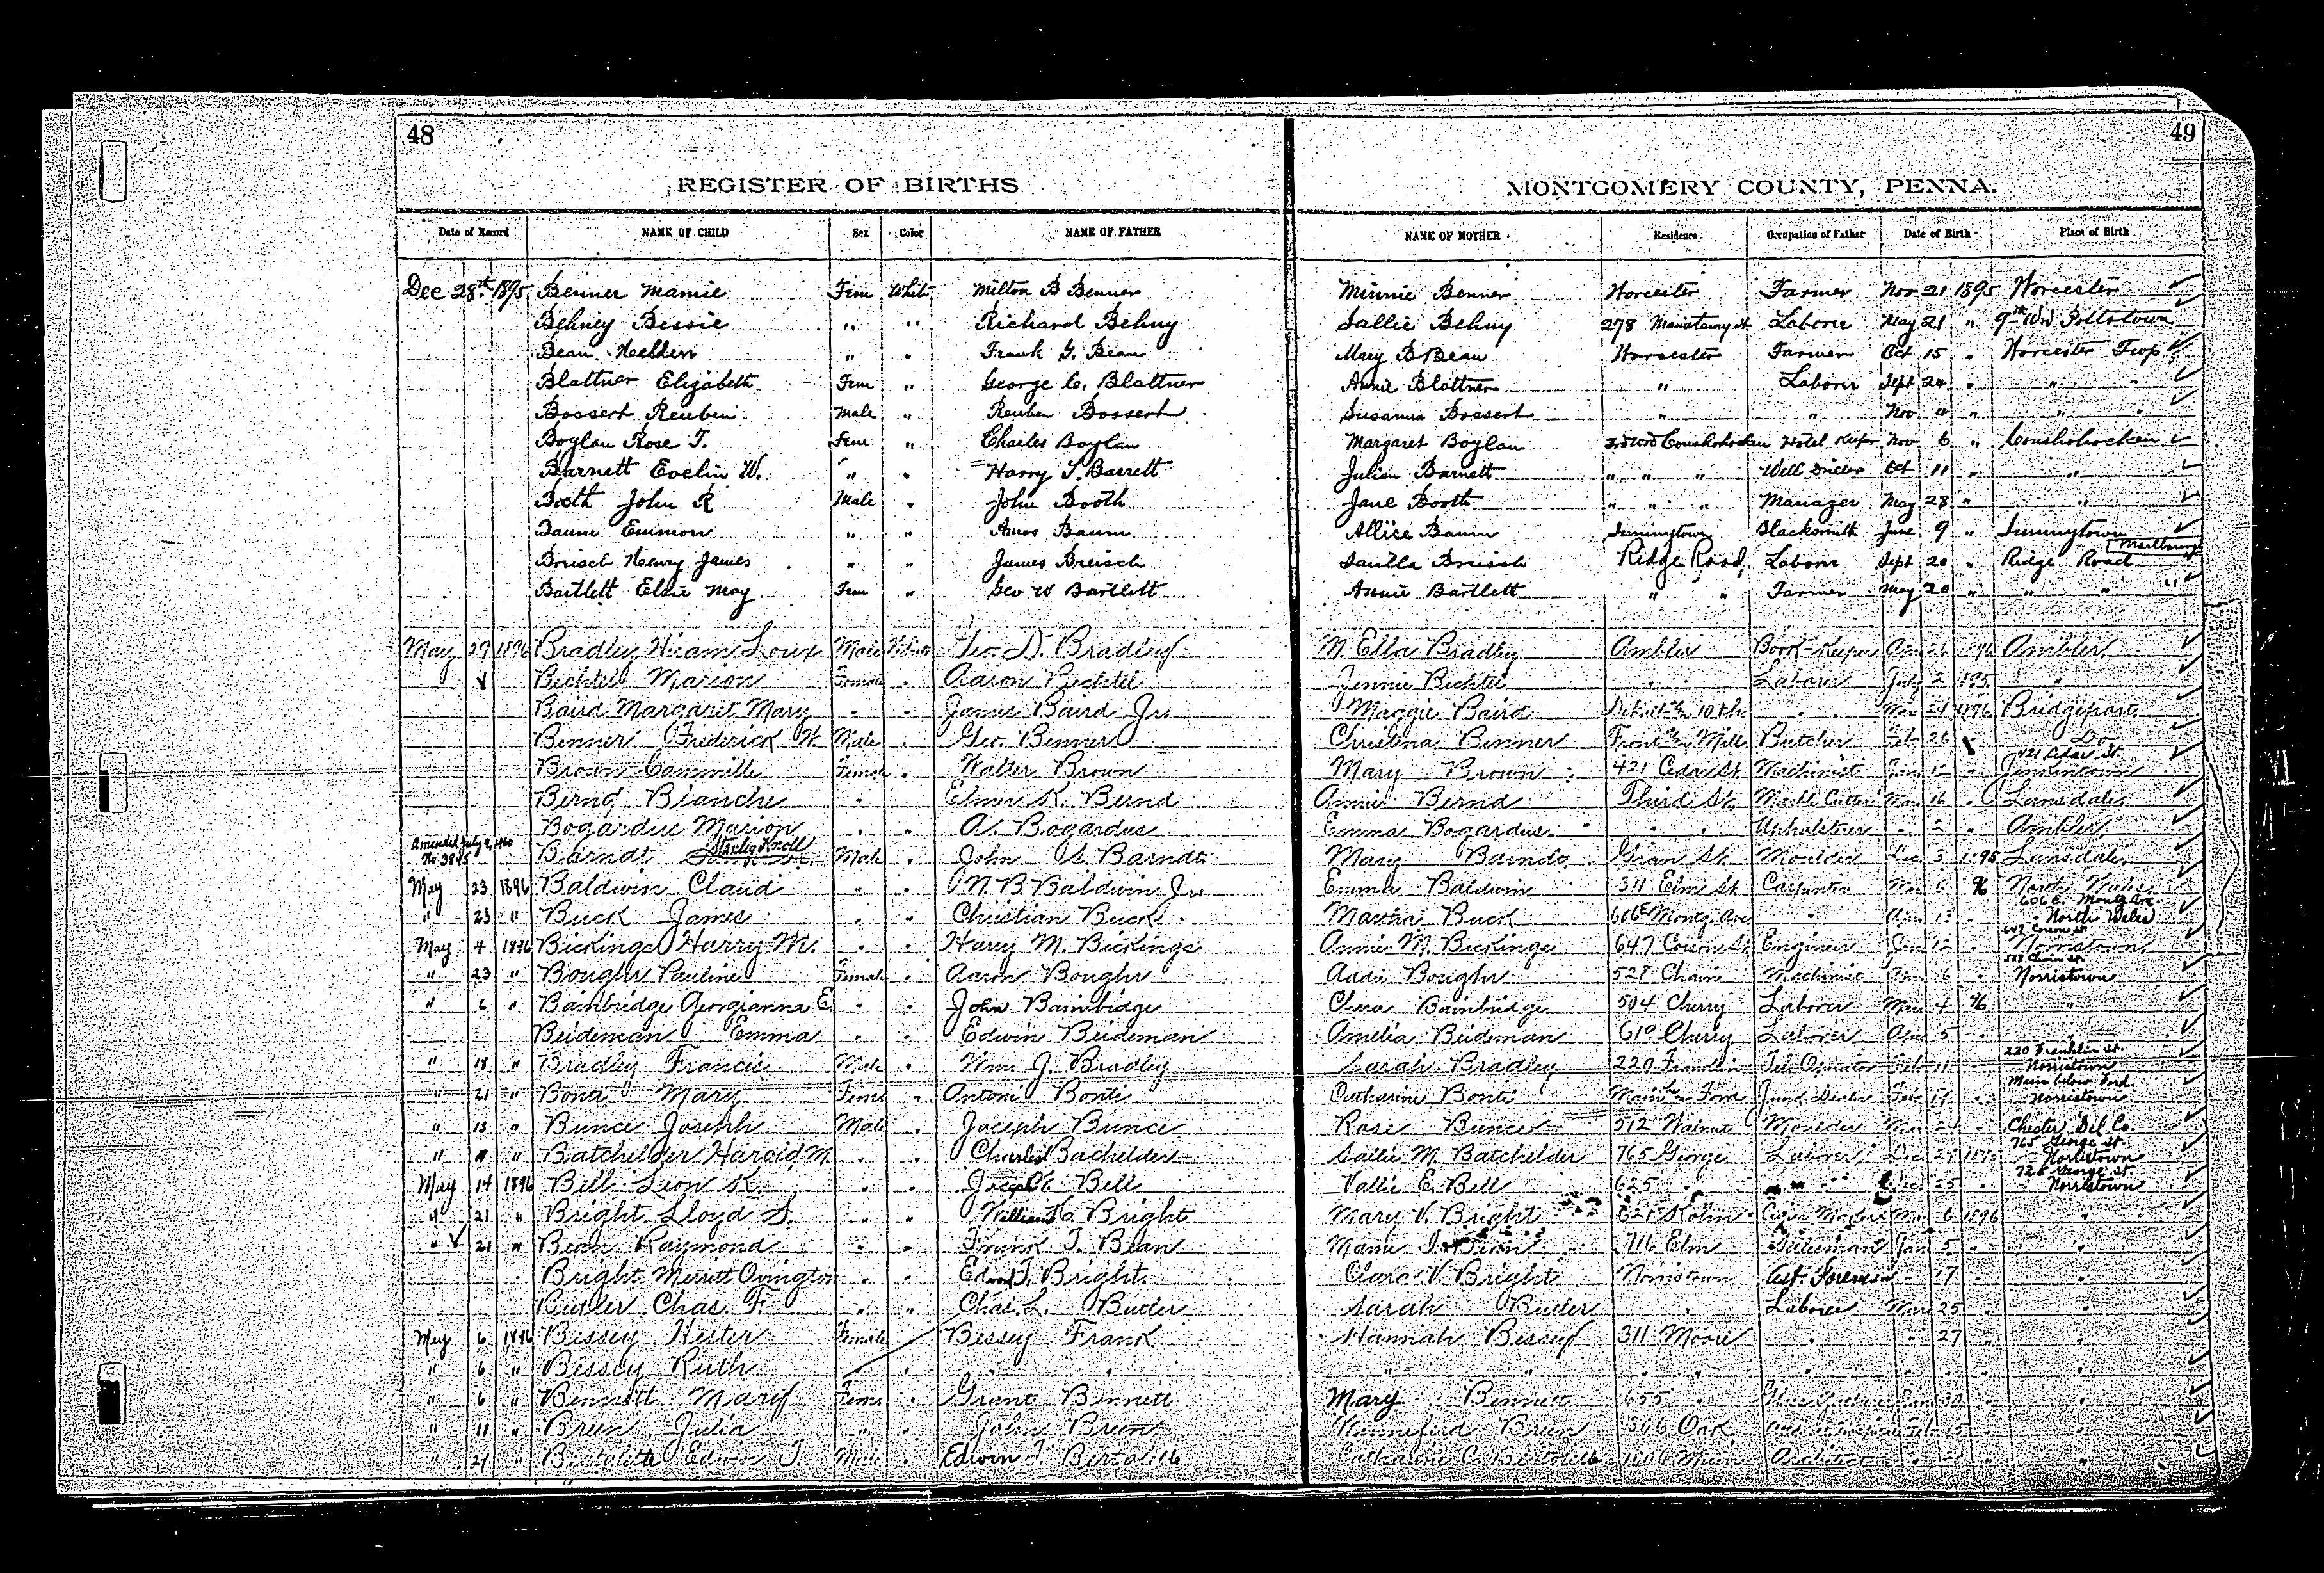 48
49
REGISTER OF BIRTHS
MONTGOMERY COUNTY, PENNA.
Date of Record NAME OF CHILD Sex Color NAME OF FATHER NAME OF MOTHER Residence Occupation of Father Date of Birth Place of Birth
Dec 28th 1895 Benner Mamie Fem White Milton B Benner Minnie Benner Worcester Farmer Nov 21 1895 Worcester
Behney Bessie " " Richard Behny Sallie Behny 278 Laborer May 21 " 9th Wd Pottstown
Bean Hellen " " Frank G. Bean Mary B Bean Worcester Farmer Oct 15 " Worcester Twp
Blattner Elizabeth Fem " George C. Blattner Annie Blattner " Laborer Sept 24 " " "
Bossert Reuben Male " Reuben Bossert Susanna Bossert " " Nov " " "
Boylan Rose T. Fem " Charles Boylan Margaret Boylan 3rd Wd Conshohocken Hotel Keeper Nov 6 " Conshohocken
Barnett Evelin W. " " Harry S. Barrett Julien Barnett " " " Well Driller Oct 11 " "
Booth John R Male " John Booth Jane Booth " " " Manager May 28 " "
Baum Emmon " " Amos Baum Allice Baum Sumnytown Blacksmith June 9 " Sumnytown
Breisch Henry James " " James Breisch Breisch Ridge Road, Laborer Sept 20 " Ridge Road
Bartlett Elsie May Fem " Geo W Bartlett Annie Bartlett " " Farmer May 20 " " " "
May 27 1896 Bradley Hiram Loux Male White Geo. D. Bradley M. Ella Bradley Ambler Book-Keeper 26 96 Ambler
Bechtel Marion Female " Aaron Bechtel Jennie Bechtel " Laborer July 2 1895 "
Baird Margaret Mary " " James Baird Jr. Maggie Baird " Mar 24 1896 Bridgeport
Benner Frederick W. Male " Geo. Benner Christina Benner Front & Mill Butcher Feb 26 " Do
Brown Cammille Female " Walter Brown Mary Brown 421 Cedar St. Machinist Jan 12 " 421 Cedar St. Jenkintown
Bernd Blanche " " Elmer K. Bernd Annie Bernd Third St. Marble Cutter Mar 16 " Lansdale
Bogardus Marion " " A. Bogardus Emma Bogardus " " Upholsterer " 2 " Ambler
Amended July 9, 1960 No. 3845 Barndt Stanley Knoll Male " John S. Barndt Mary Barndt Green St. Moulder Dec 3 1895 Lansdale
May 23 1896 Baldwin Claud " " N. B. Baldwin Jr. Emma Baldwin 311 Elm St. Carpenter Mar 6 96 North Wales
" 23 " Buck James " " Christian Buck Martin Buck 606 E Montg. Ave " 13 " 606 E. Montg Ave. North Wales
May 4 1896 Bickings Harry M. " " Harry M. Bickings Annie M. Bickings 647 Corson St. Engineer Jan 12 " 647 Corson St. Norristown
" 23 " Bougher Pauline Female " Aaron Bougher Addie Bougher 528 Chain Machinist 6 " 528 Chain St. Norristown
" 6 " Bambridge Georgianna E. " " John Bambridge Clara Bainbridge 504 Cherry Laborer Mar 4 96 "
Beideman Emma " " Edwin Beideman Amelia Beideman 610 Cherry Laborer 5 " "
" 18 " Bradley Francis Male " Wm. J. Bradley Sarah Bradley 220 Franklin Tel. Operator Feb 11 " 220 Franklin St. Norristown
" 21 " Bonti Mary Fem " Antoni Bonti Catharine Bonti Main Ford Junk Dealer Feb 17 " Main below Ford. Norristown
" 13 " Bunce Joseph Male " Joseph Bunce Rose Bunce 512 Walnut Moulder Mar 24 " Chester Del. Co.
" " " Batchelder Harold M. " " Charles Bachelder Sallie M. Batchelder 765 George Laborer Dec 29 1895 765 George St. Norristown
May 14 1896 Bell Leon K. " " Joseph C. Bell Vallie E. Bell 625 " Dec 25 " 726 George St. Norristown
" 21 " Bright Lloyd S. " " William C. Bright Mary V. Bright 621 Kohn Cigar Maker Mar 6 1896 "
" 21 " Bean Raymond " " Frank T. Bean Mame T. Bean 716 Elm Salesman Jan 5 " "
Bright Merritt Ovington " " Edward T. Bright Clara V. Bright Norristown Ast Foreman " 17 " "
Butler Chas. F. " " Chas. L. Butler Sarah Butler " Laborer Mar 25 " "
May 6 1896 Bissey Hester Female " Bissey Frank Hannah Bissey 311 Moore " " 27 " "
" 6 " Bissey Ruth " " " " " " "
" 6 " Bennett Mary Fem " Grant Bennett Mary Bennett 655 " 30 " "
" 11 " Breen Julia " " John Breen Winnefird Breen 566 Oak Feb 15 " "
" 21 " Bertolette Edwin T. Male " Edwin T. Bertolette Catharine C. Bertolette Main Architect "